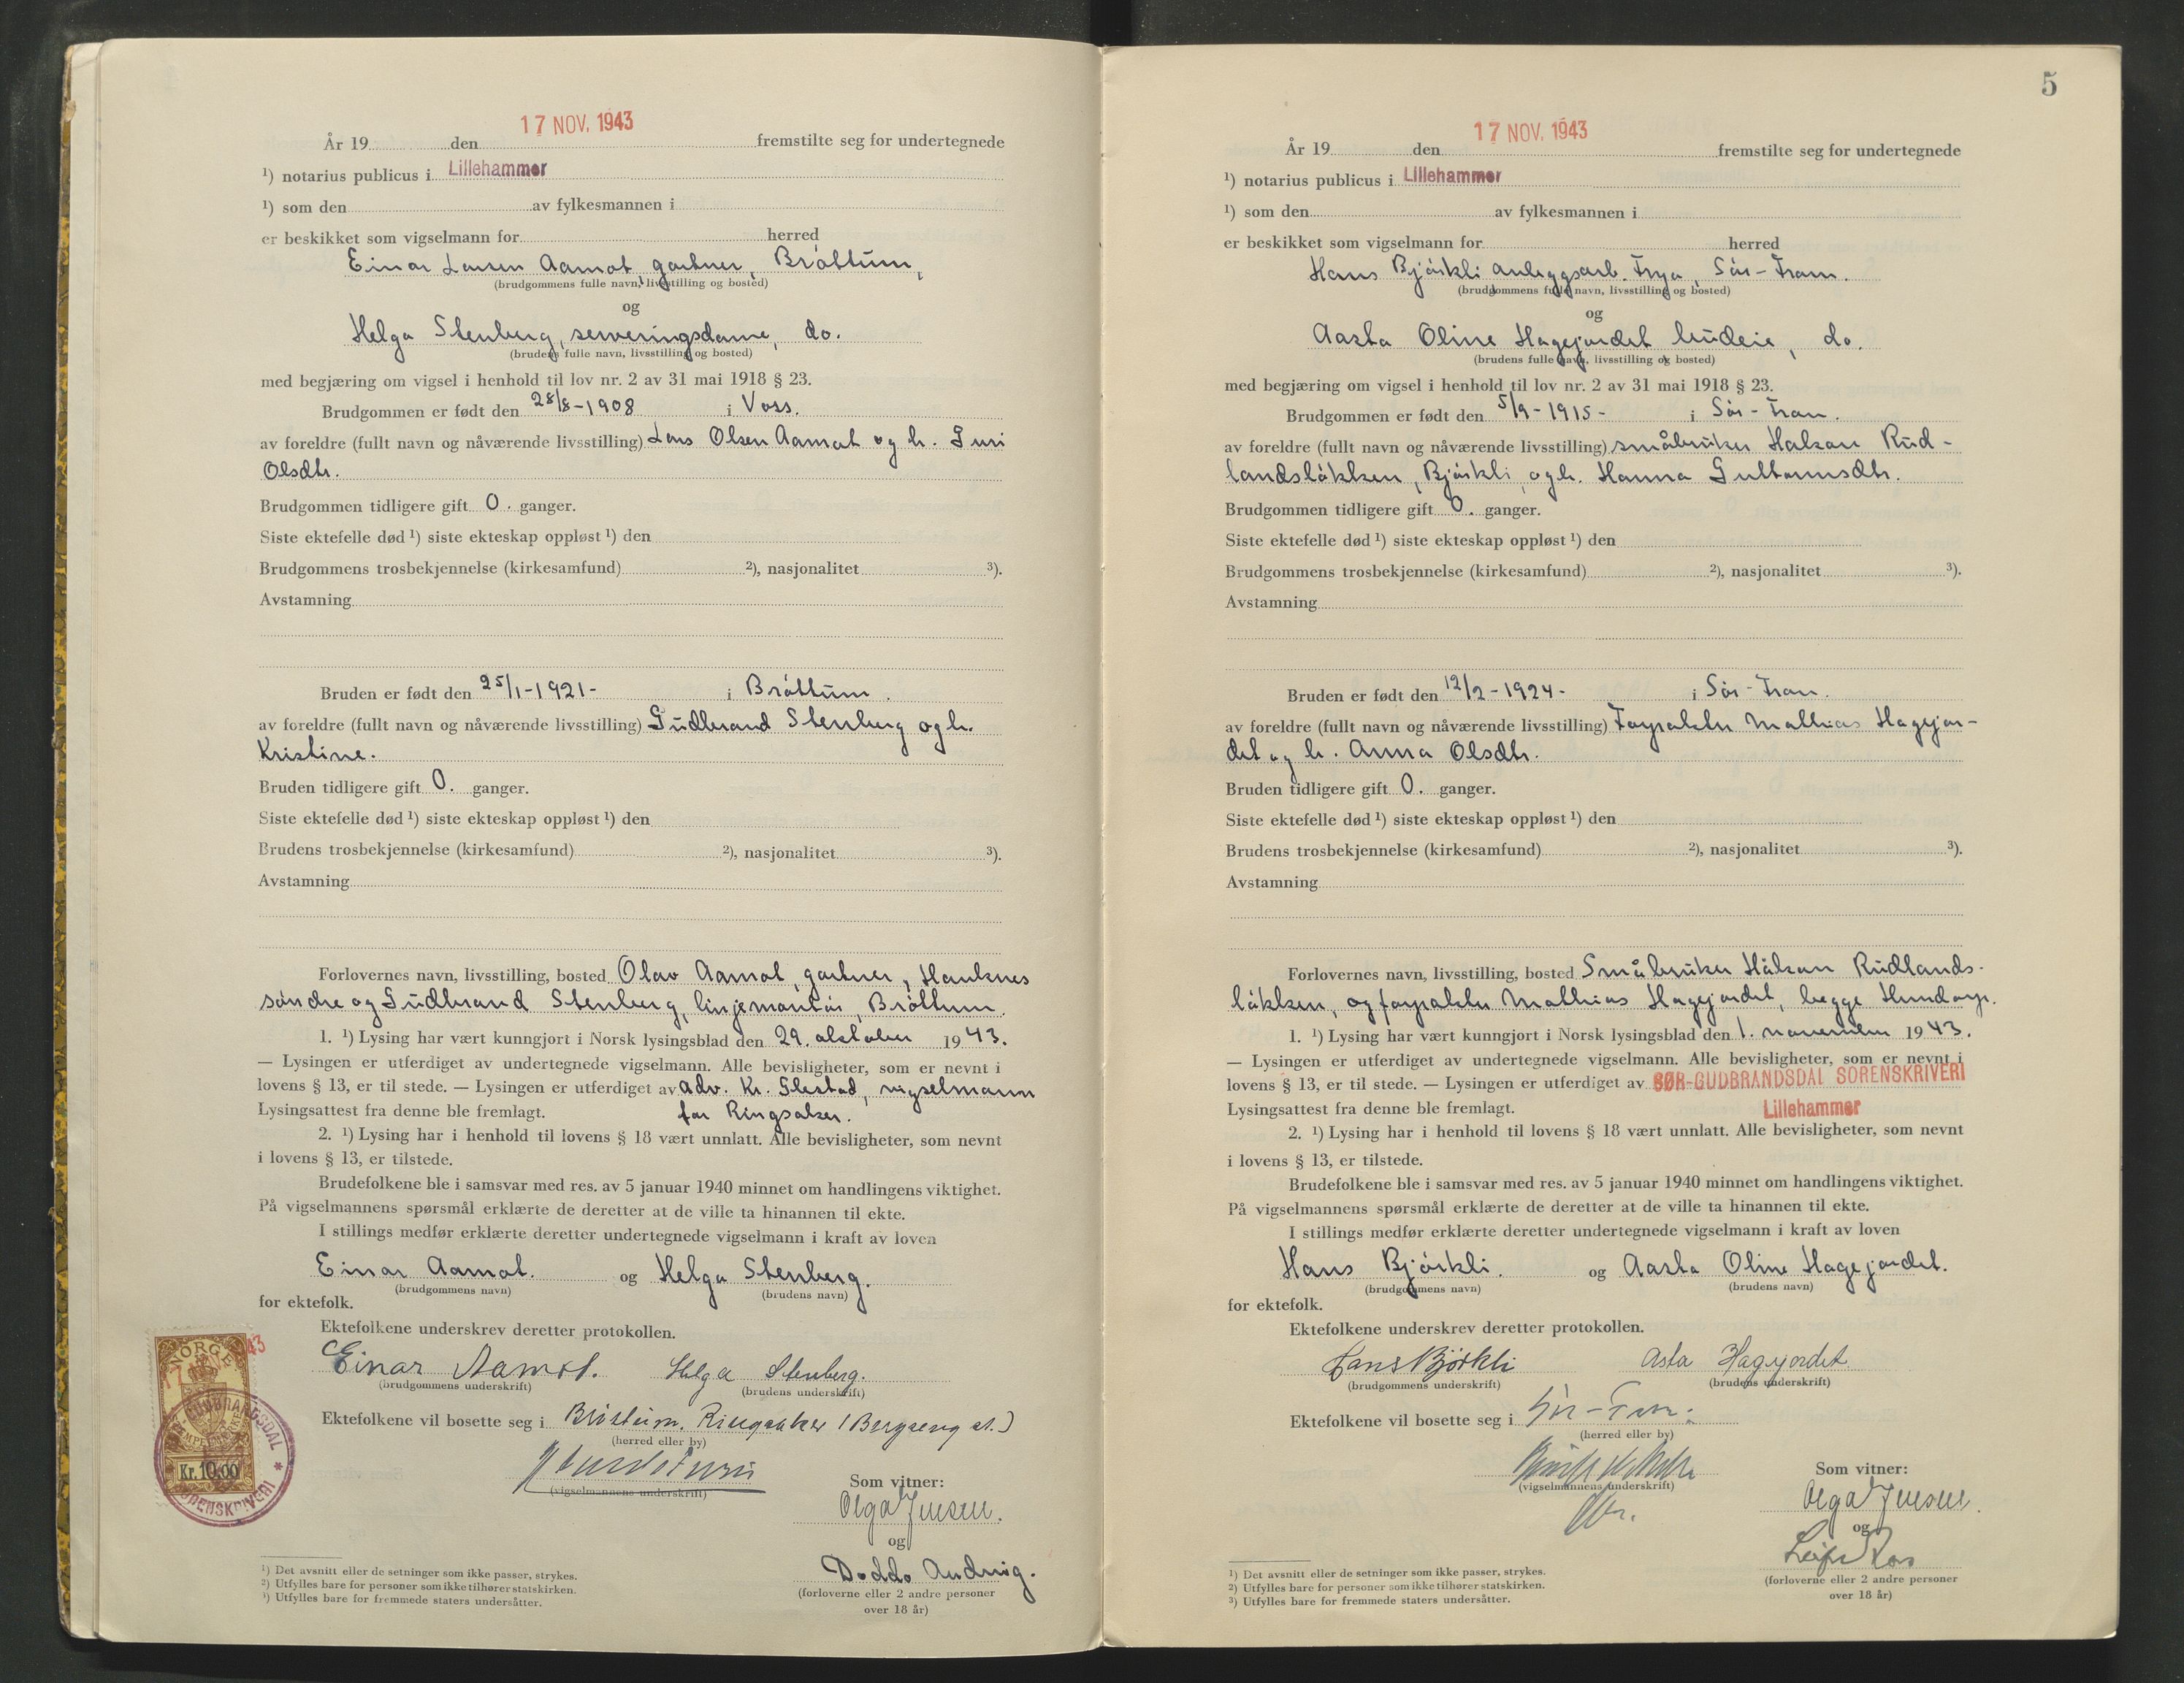 17 NOV. 1943
År 19 den fremstilte seg for undertegnede
¹) notarius publicus i Lillehammer
¹) som den av fylkesmannen i
er beskikket som vigselmann for herred
Einar Larsen Aamot, gartner, Bröttum,
(brudgommens fulle navn, livsstilling og bosted)
og
Helga Stenberg, serveringsdame, do.
(brudens fulle navn, livsstilling og bosted)
med begjæring om vigsel i henhold til lov nr. 2 av 31 mai 1918 § 23.
Brudgommen er født den 28/8-1908 i Voss.
av foreldre (fullt navn og nåværende livsstilling) Lars Olsen Aamot og h. Guri
Olsdtr.
Brudgommen tidligere gift 0. ganger.
Siste ektefelle død ¹) siste ekteskap oppløst ¹) den
Brudgommens trosbekjennelse (kirkesamfund) ²), nasjonalitet ³).
Avstamning
Bruden er født den 25/1-1921- i Bröttum.
av foreldre (fullt navn og nåværende livsstilling) Gudbrand Stenberg og h.
Kristine.
Bruden tidligere gift 0. ganger.
Siste ektefelle død ¹) siste ekteskap oppløst ¹) den
Brudens trosbekjennelse (kirkesamfund) ²), nasjonalitet ³).
Avstamning
Forlovernes navn, livsstilling, bosted Olav Aamot, gartner, Hauknes
söndre og Gudbrand Stenberg, linjemontör, Bröttum.
1. ¹) Lysing har vært kunngjort i Norsk lysingsblad den 29. oktober 1943.
— Lysingen er utferdiget av undertegnede vigselmann. Alle bevisligheter, som er nevnt i
lovens § 13, er til stede. — Lysingen er utferdiget av adv. Kr. Slestad, vigselmann
Lysingsattest fra denne ble fremlagt. for Ringsaker.
2. ¹) Lysing har i henhold til lovens § 18 vært unnlatt. Alle bevisligheter, som nevnt
i lovens § 13, er tilstede.
Brudefolkene ble i samsvar med res. av 5 januar 1940 minnet om handlingens viktighet.
På vigselmannens spørsmål erklærte de deretter at de ville ta hinannen til ekte.
I stillings medfør erklærte deretter undertegnede vigselmann i kraft av loven
Einar Aamot. og Helga Stenberg.
(brudgommens navn) (brudens navn)
for ektefolk.
Ektefolkene underskrev deretter protokollen.
Einar Aamot. Helga Stenberg.
(brudgommens underskrift) (brudens underskrift)
Ektefolkene vil bosette seg i Bröttum, Ringsaker (Bergseng st.)
(herred eller by)
(vigselmannens underskrift)
Som vitner:
Olga Jensen.
og
Doddo Andvig.
(forloverne eller 2 andre personer
over 18 år)
NORGE
Kr. 10,00
¹) Det avsnitt eller de setninger som ikke passer, strykes.
²) Utfylles bare for personer som ikke tilhører statskirken.
³) Utfylles bare for fremmede staters undersåtter.
5
17 NOV. 1943
År 19 den fremstilte seg for undertegnede
¹) notarius publicus i Lillehammer
¹) som den av fylkesmannen i
er beskikket som vigselmann for herred
Hans Björkli anleggsarb. Frya, Sör-Fron.
(brudgommens fulle navn, livsstilling og bosted)
og
Aasta Oline Hagejordet budeie, do.
(brudens fulle navn, livsstilling og bosted)
med begjæring om vigsel i henhold til lov nr. 2 av 31 mai 1918 § 23.
Brudgommen er født den 5/9-1915- i Sör-Fron.
av foreldre (fullt navn og nåværende livsstilling) småbruker Hakon Rud-
landslökken, Björkli, og h. Hanna Guttormsdtr.
Brudgommen tidligere gift 0. ganger.
Siste ektefelle død ¹) siste ekteskap oppløst ¹) den
Brudgommens trosbekjennelse (kirkesamfund) ²), nasjonalitet ³).
Avstamning
Bruden er født den 12/2-1924- i Sör-Fron.
av foreldre (fullt navn og nåværende livsstilling) Forpakter Mathias Hagejor-
det og h. Anna Olsdtr.
Bruden tidligere gift 0. ganger.
Siste ektefelle død ¹) siste ekteskap oppløst ¹) den
Brudens trosbekjennelse (kirkesamfund) ²), nasjonalitet ³).
Avstamning
Forlovernes navn, livsstilling, bosted Småbruker Håkon Rudlands-
lökken, og forpakter Mathias Hagejordet, begge Hundorp.
1. ¹) Lysing har vært kunngjort i Norsk lysingsblad den 1. november 1943.
— Lysingen er utferdiget av undertegnede vigselmann. Alle bevisligheter, som er nevnt i
lovens § 13, er til stede. — Lysingen er utferdiget av SØR-GUDBRANDSDAL SORENSKRIVERI
Lysingsattest fra denne ble fremlagt. Lillehammer
2. ¹) Lysing har i henhold til lovens § 18 vært unnlatt. Alle bevisligheter, som nevnt
i lovens § 13, er tilstede.
Brudefolkene ble i samsvar med res. av 5 januar 1940 minnet om handlingens viktighet.
På vigselmannens spørsmål erklærte de deretter at de ville ta hinannen til ekte.
I stillings medfør erklærte deretter undertegnede vigselmann i kraft av loven
Hans Björkli. og Aasta Oline Hagejordet.
(brudgommens navn) (brudens navn)
for ektefolk.
Ektefolkene underskrev deretter protokollen.
Hans Bjørkli Asta Hagejordet
(brudgommens underskrift) (brudens underskrift)
Ektefolkene vil bosette seg i Sör-Fron.
(herred eller by)
(vigselmannens underskrift)
Som vitner:
Olga Jensen.
og
Leif Ros
(forloverne eller 2 andre personer
over 18 år)
¹) Det avsnitt eller de setninger som ikke passer, strykes.
²) Utfylles bare for personer som ikke tilhører statskirken.
³) Utfylles bare for fremmede staters undersåtter.